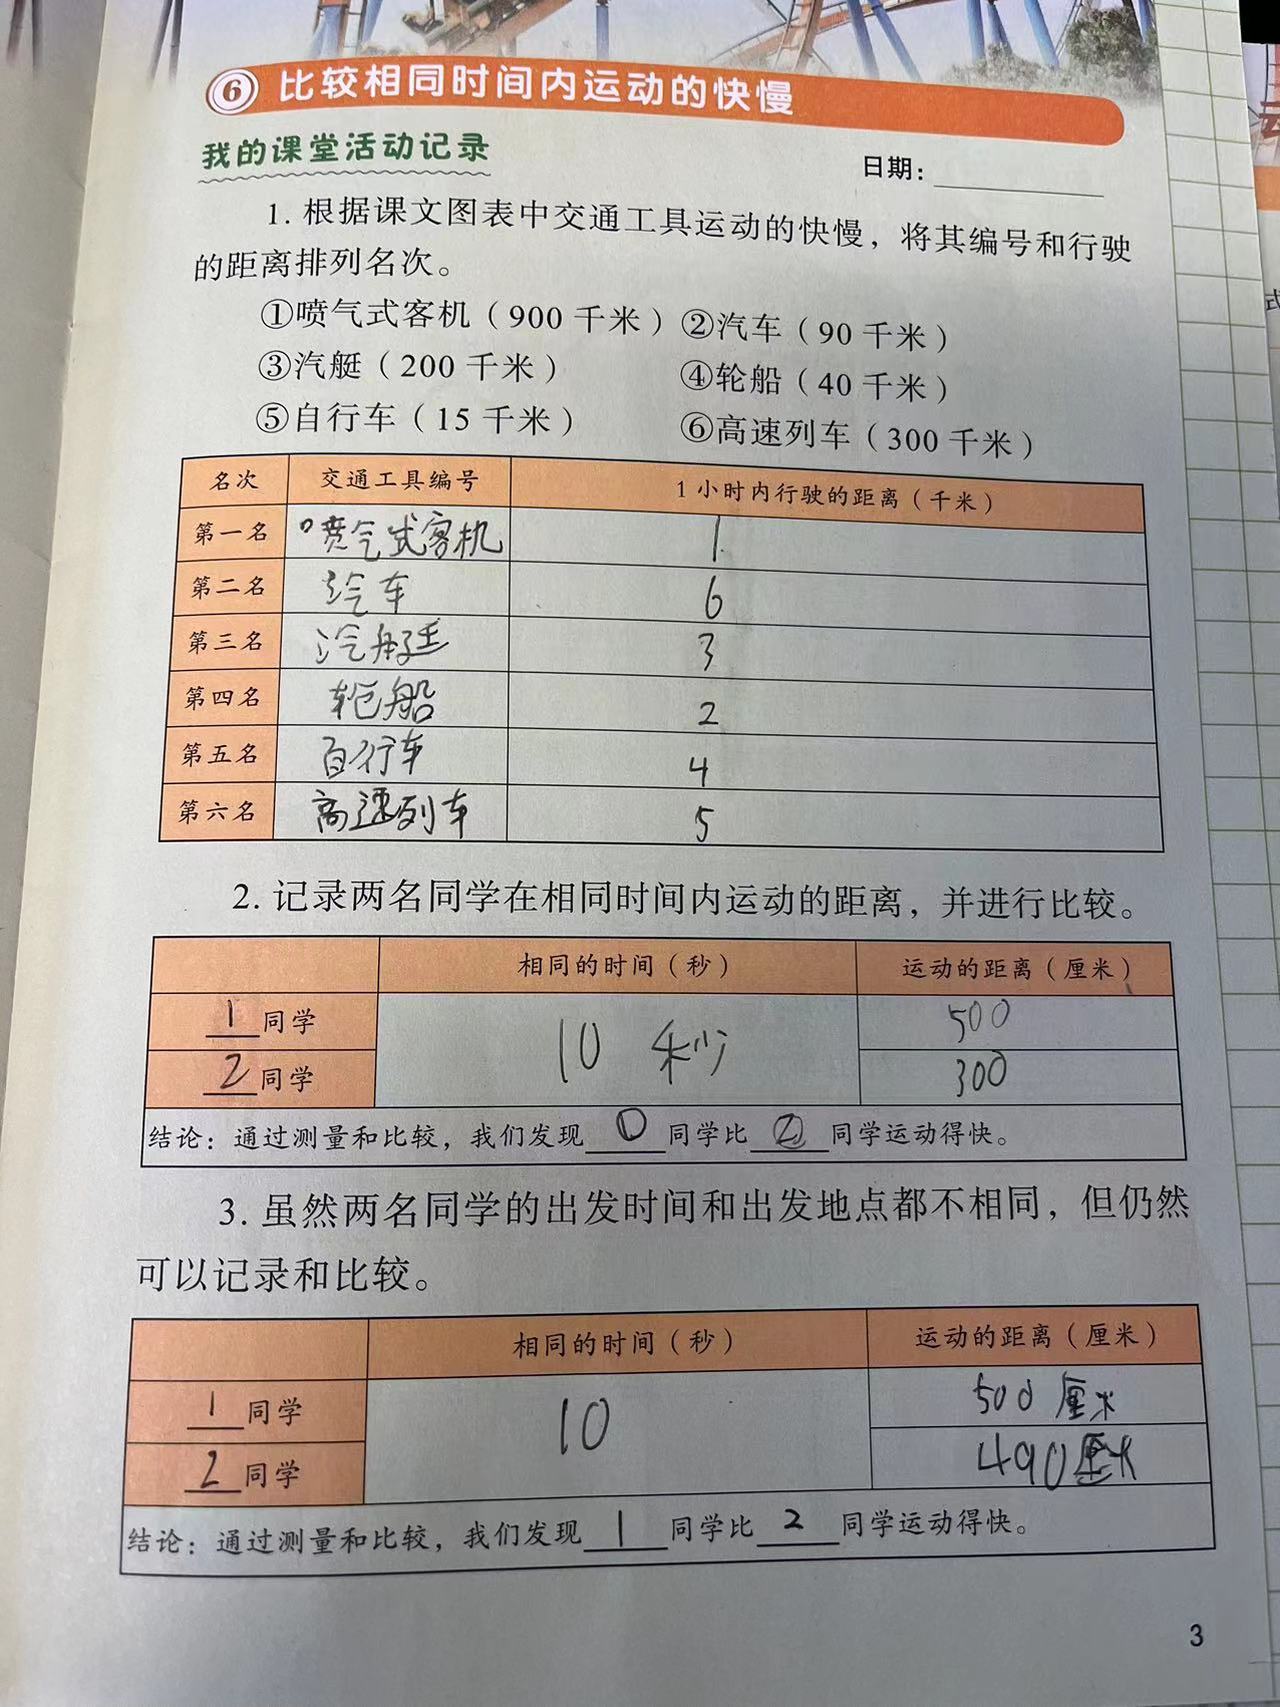 6 比较相同时间内运动的快慢
我的课堂活动记录
日期：
1. 根据课文图表中交通工具运动的快慢，将其编号和行驶
的距离排列名次。
①喷气式客机（900 千米） ②汽车（90 千米）
③汽艇（200 千米） ④轮船（40 千米）
⑤自行车（15 千米） ⑥高速列车（300 千米）
名次 交通工具编号 1 小时内行驶的距离（千米）
第一名 喷气式客机 1
第二名 汽车 6
第三名 汽艇 3
第四名 轮船 2
第五名 自行车 4
第六名 高速列车 5
2. 记录两名同学在相同时间内运动的距离，并进行比较。
相同的时间（秒） 运动的距离（厘米）
1 同学 10 秒 500
2 同学 300
结论：通过测量和比较，我们发现 ① 同学比 ② 同学运动得快。
3. 虽然两名同学的出发时间和出发地点都不相同，但仍然
可以记录和比较。
相同的时间（秒） 运动的距离（厘米）
1 同学 10 500 厘米
2 同学 490厘米
结论：通过测量和比较，我们发现 1 同学比 2 同学运动得快。
3